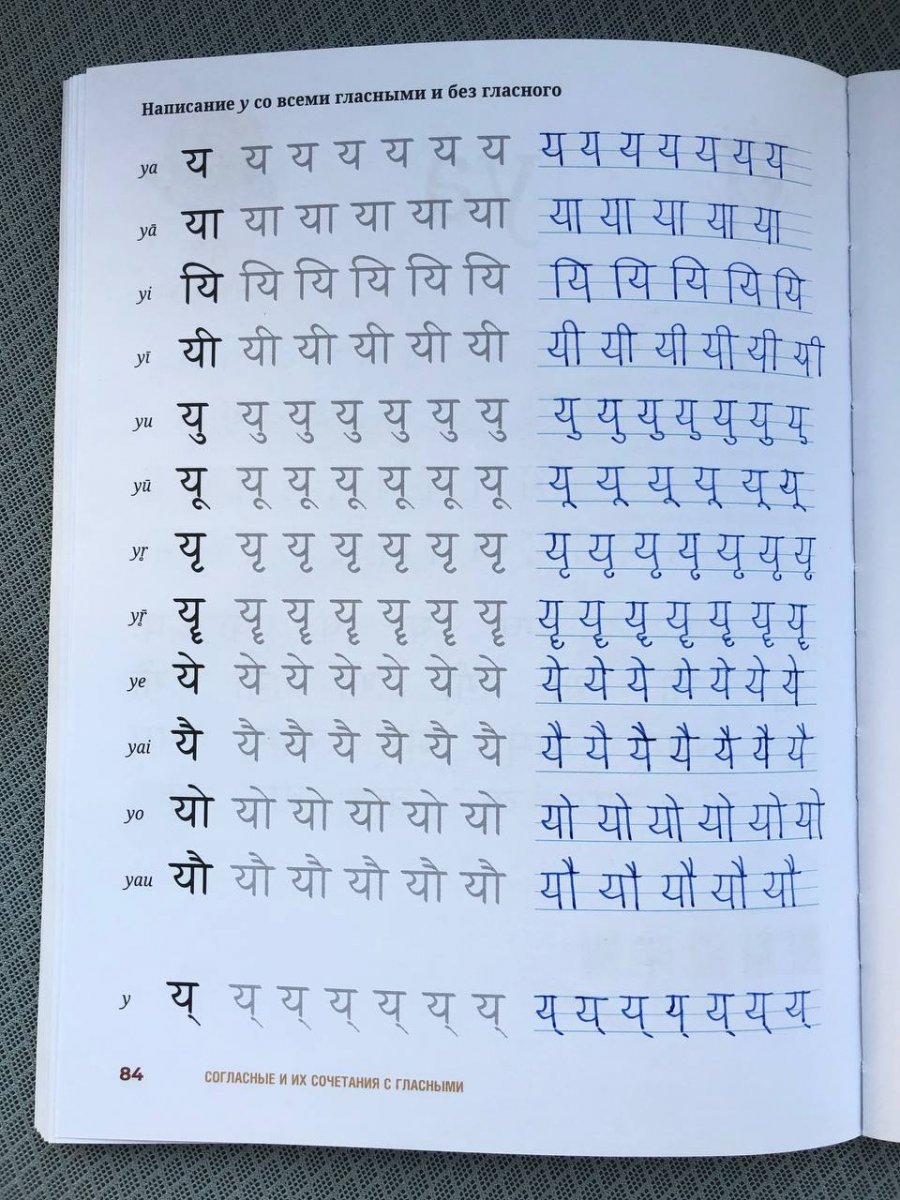 Написание y со всеми гласными и без гласного
ya य य य य य य य य य य य य य य
yā या या या या या या या या या या या
yi यि यि यि यि यि यि यि यि यि यि यि
yī यी यी यी यी यी यी यी यी यी यी यी यी
yu यु यु यु यु यु यु यु यु यु यु यु यु यु यु
yū यू यू यू यू यू यू यू यू यू यू यू यू यू
yṛ यृ यृ यृ यृ यृ यृ यृ यृ यृ यृ यृ यृ यृ यृ
yṝ यॄ यॄ यॄ यॄ यॄ यॄ यॄ यॄ यॄ यॄ यॄ यॄ यॄ यॄ
ye ये ये ये ये ये ये ये ये ये ये ये ये ये ये
yai यै यै यै यै यै यै यै यै यै यै यै यै यै यै
yo यो यो यो यो यो यो यो यो यो यो यो यो
yau यौ यौ यौ यौ यौ यौ यौ यौ यौ यौ यौ
y य् य् य् य् य् य् य् य् य् य् य् य् य् य्
84 СОГЛАСНЫЕ И ИХ СОЧЕТАНИЯ С ГЛАСНЫМИ